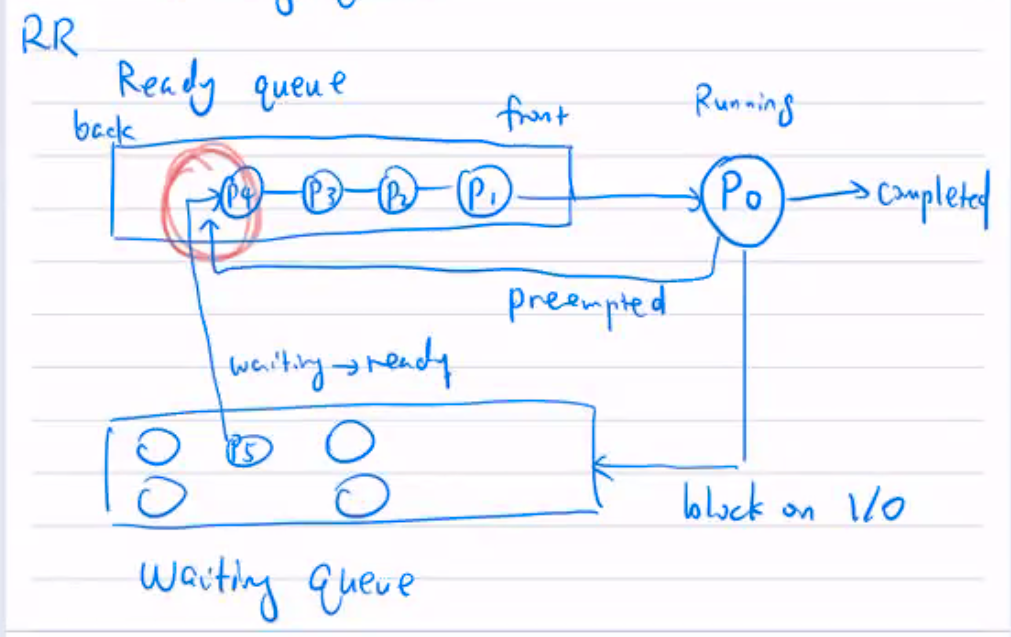 RR
Ready queue
back
front
Running
P4 P3 P2 P1
P0
completed
preempted
waiting → ready
P5
block on I/O
Waiting queue